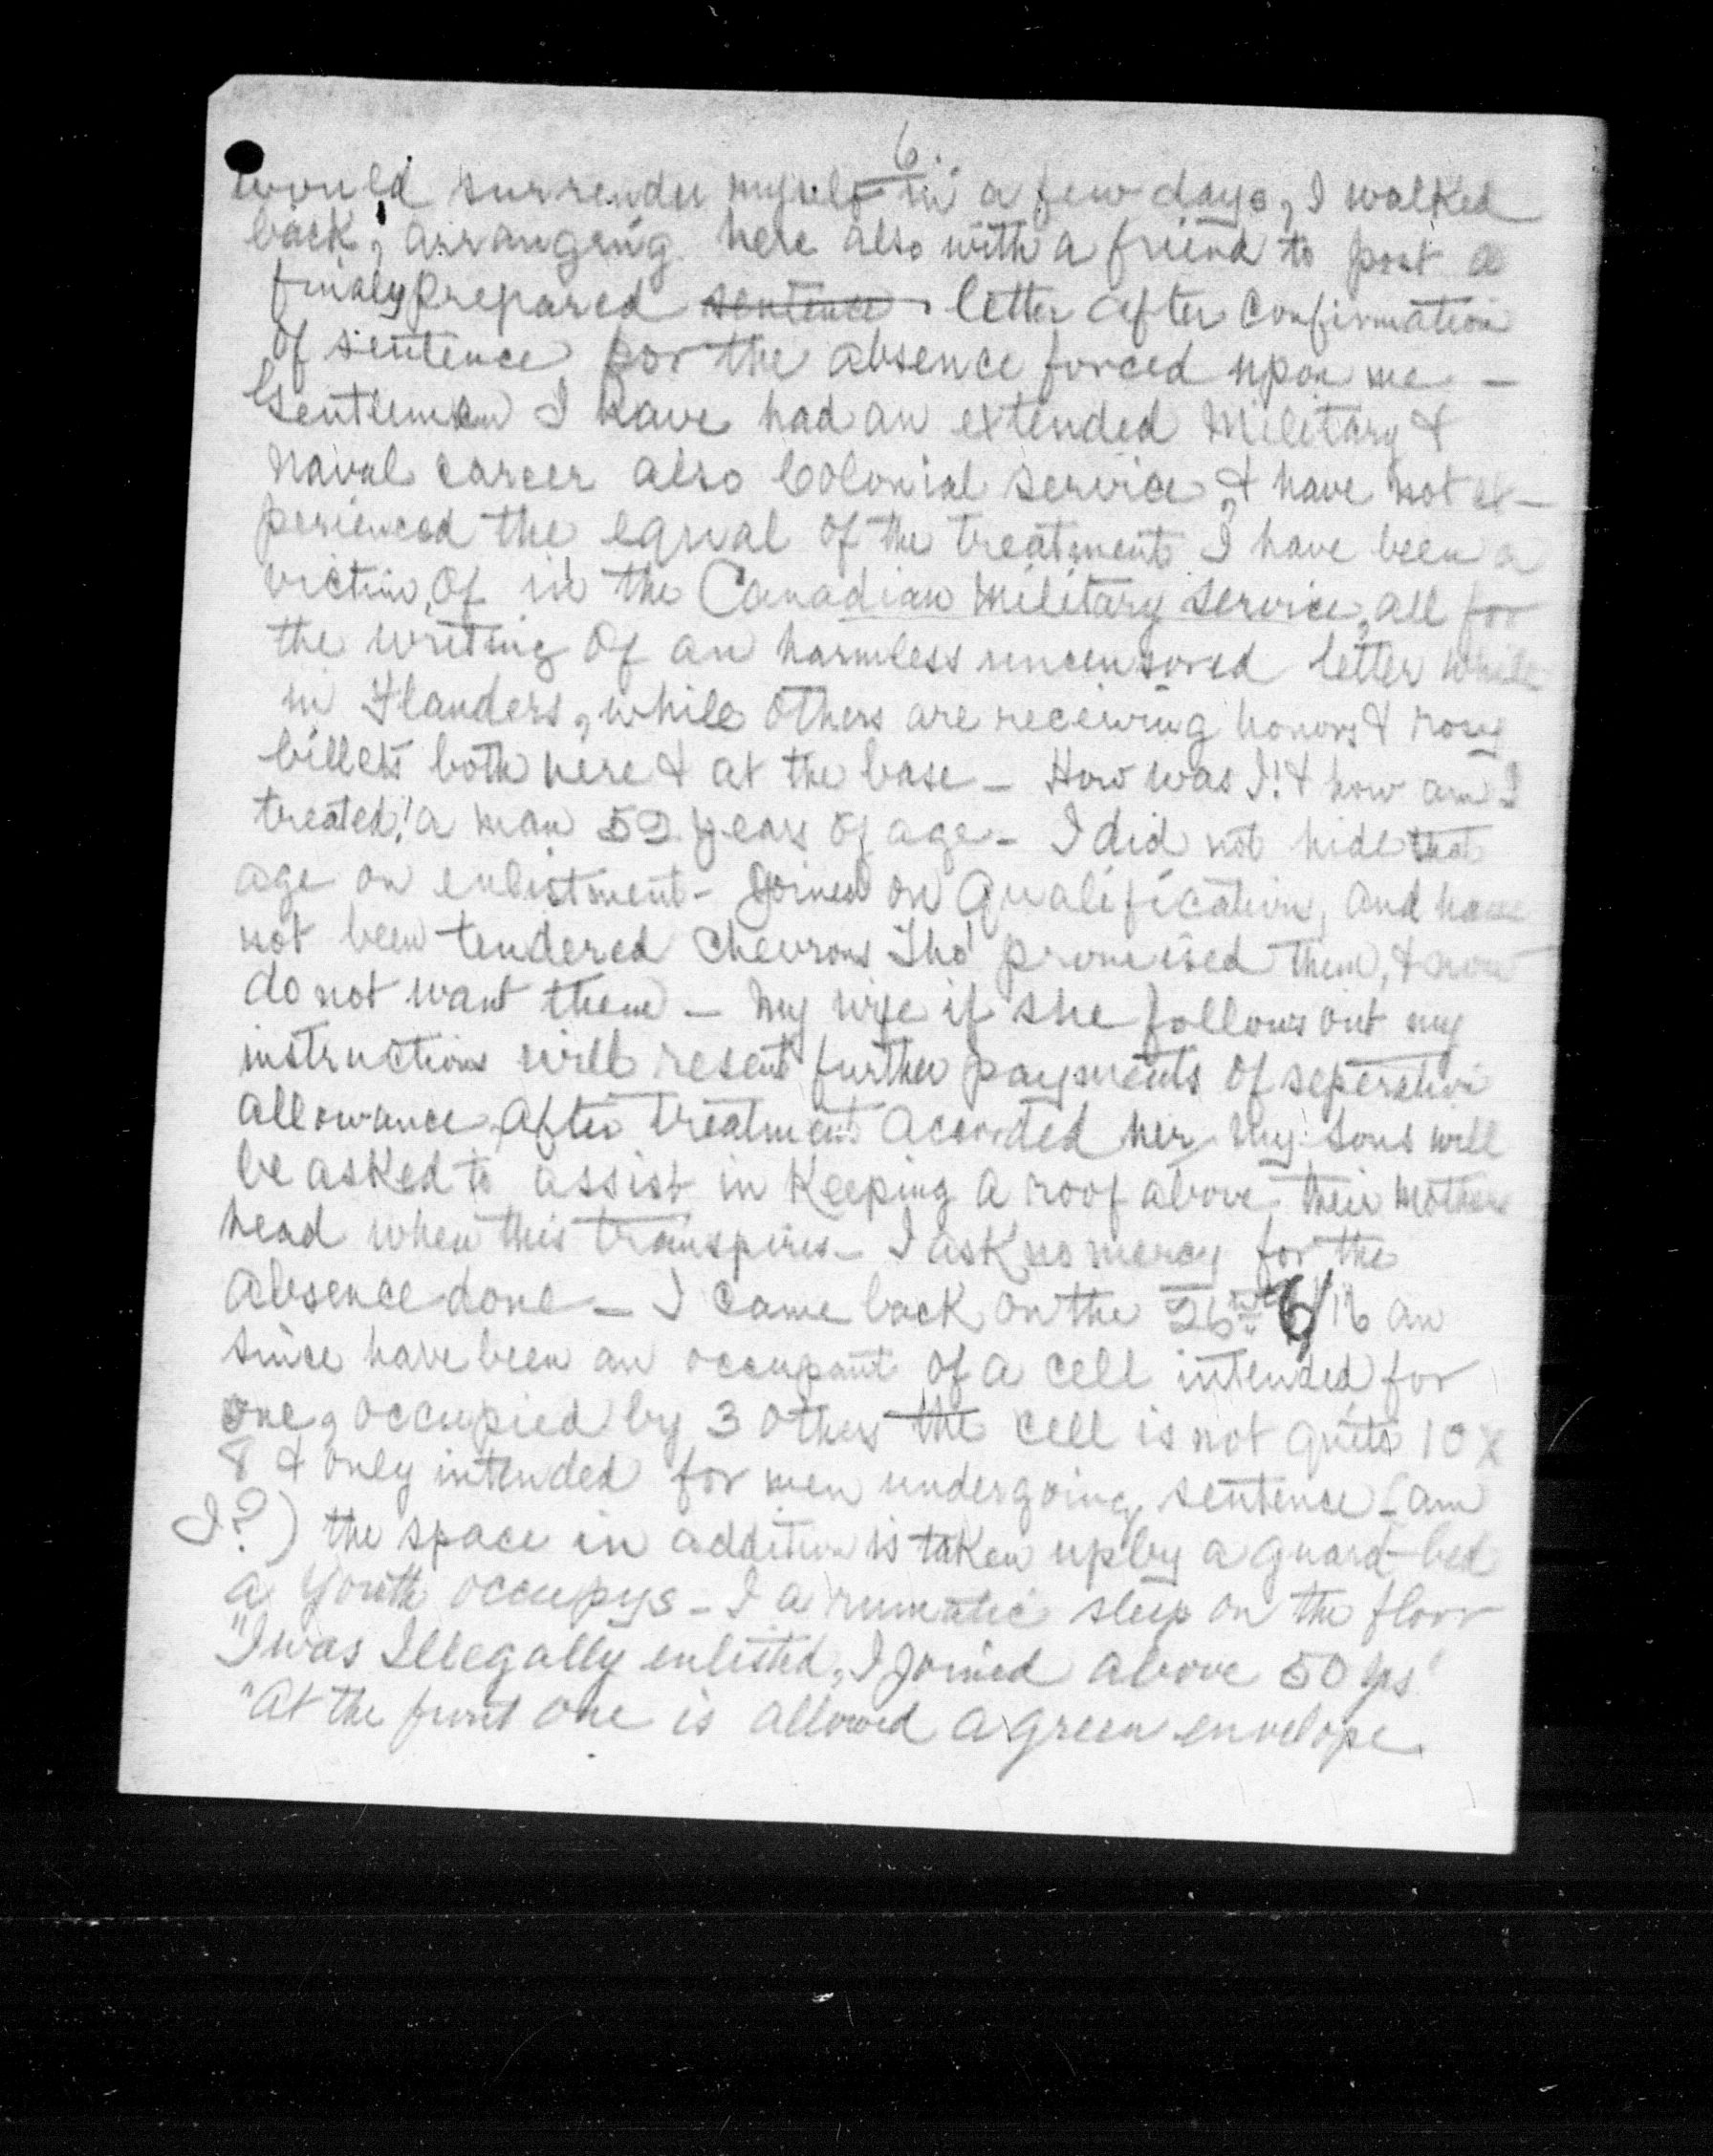 6.
would surrender myself in a few days, I walked
back, arranging here also with a friend to post a
finaly prepared sentence letter after confirmation
of sentence for the absence forced upon me —
Gentlemen I have had an extended Military &
Naval career also Colonial service, & have not ex-
perienced the equal of the treatment I have been a
victim of in the Canadian Military service, all for
the writing of an harmless uncensored letter while
in Flanders, while others are receiving honors & rosy
billets both here & at the base — How was I! & how am I
treated! a man 52 years of age — I did not hide that
age on enlistment — Joined on qualification, and have
not been tendered chevrons tho' promised them, & now
do not want them — My wife if she follows out my
instructions will resent further payments of seperation
allowance after treatment accorded her, my sons will
be asked to assist in keeping a roof above their mothers
head when this transpires — I ask no mercy for the
absence done — I came back on the 6/16 an
since have been an occupant of a cell intended for
one, occupied by 3 others the cell is not quite 10 x
8 & only intended for men undergoing sentence (am
I?) the space in addition is taken up by a guard-bed
a youth occupys — I a rumatic sleep on the floor
"I was Illegally enlisted, I joined above 50 yrs"
"At the front one is allowed a green envelope.